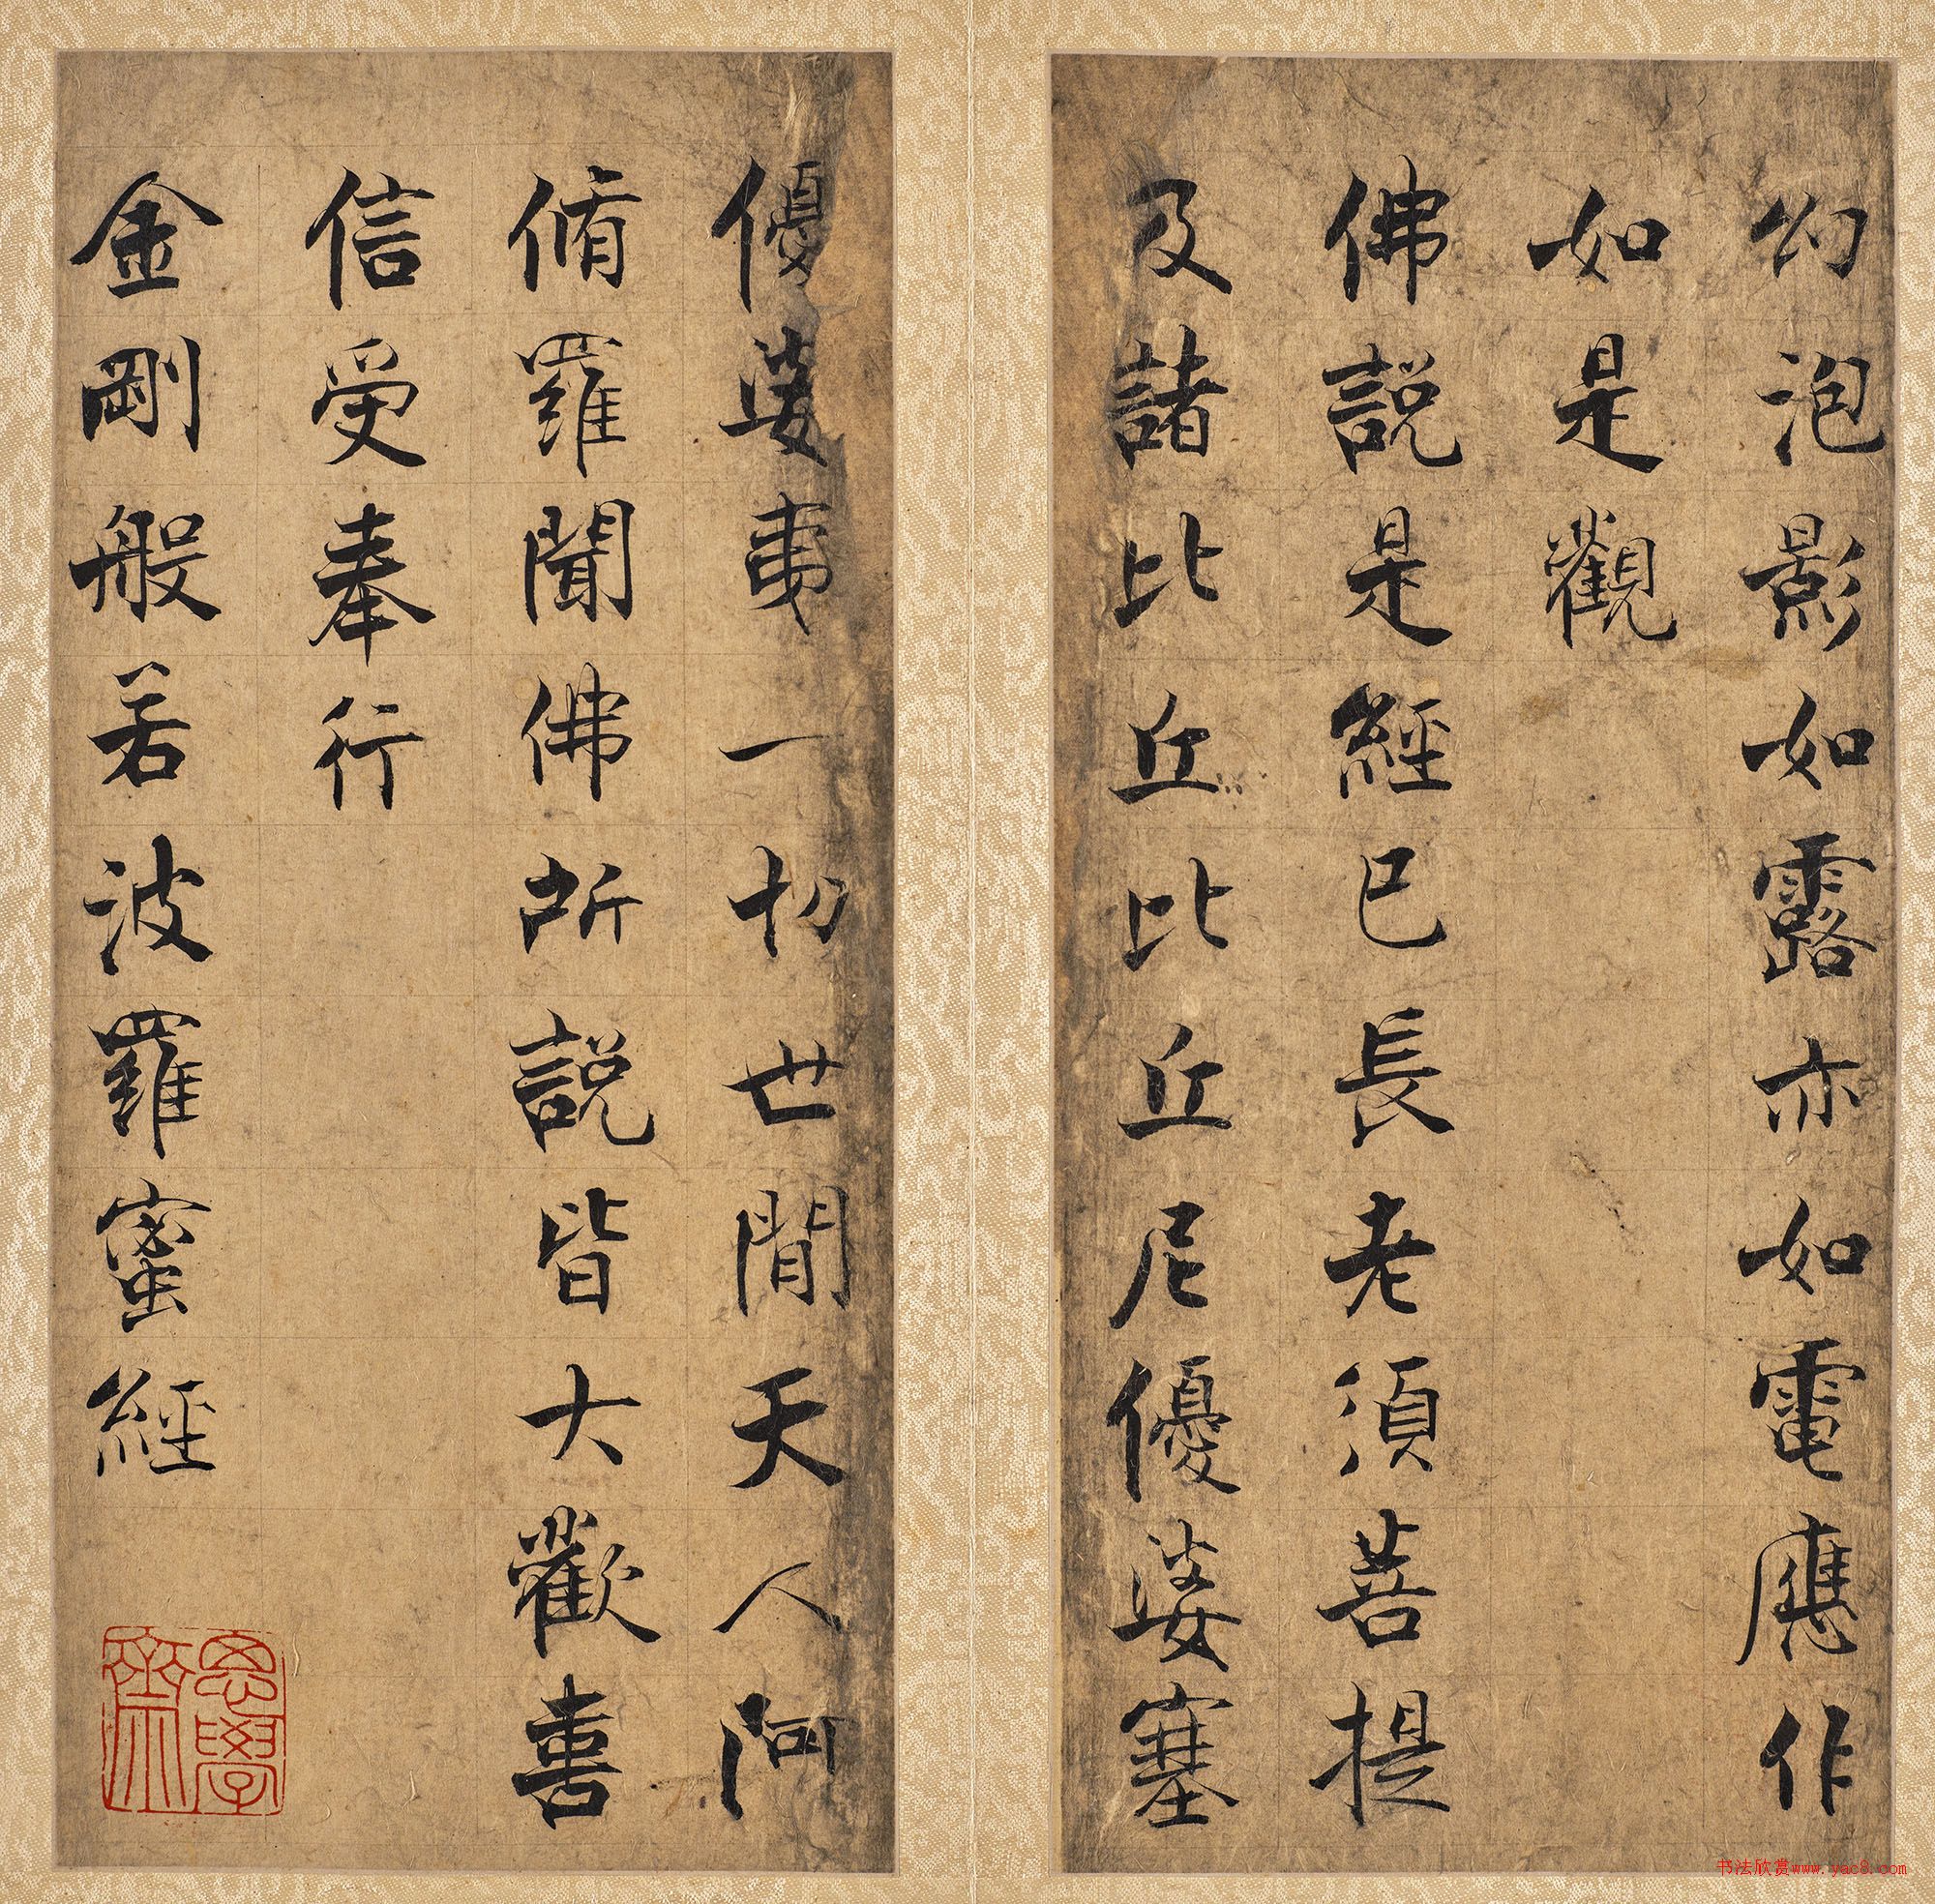 幻泡影如露亦如電應作
如是觀
佛説是經已長老須菩提
及諸比丘比丘尼優婆塞
優婆夷一切世間天人阿
脩羅聞佛所説皆大歡喜
信受奉行
金剛般若波羅蜜經
思學齋
书法欣赏www.yac8.com